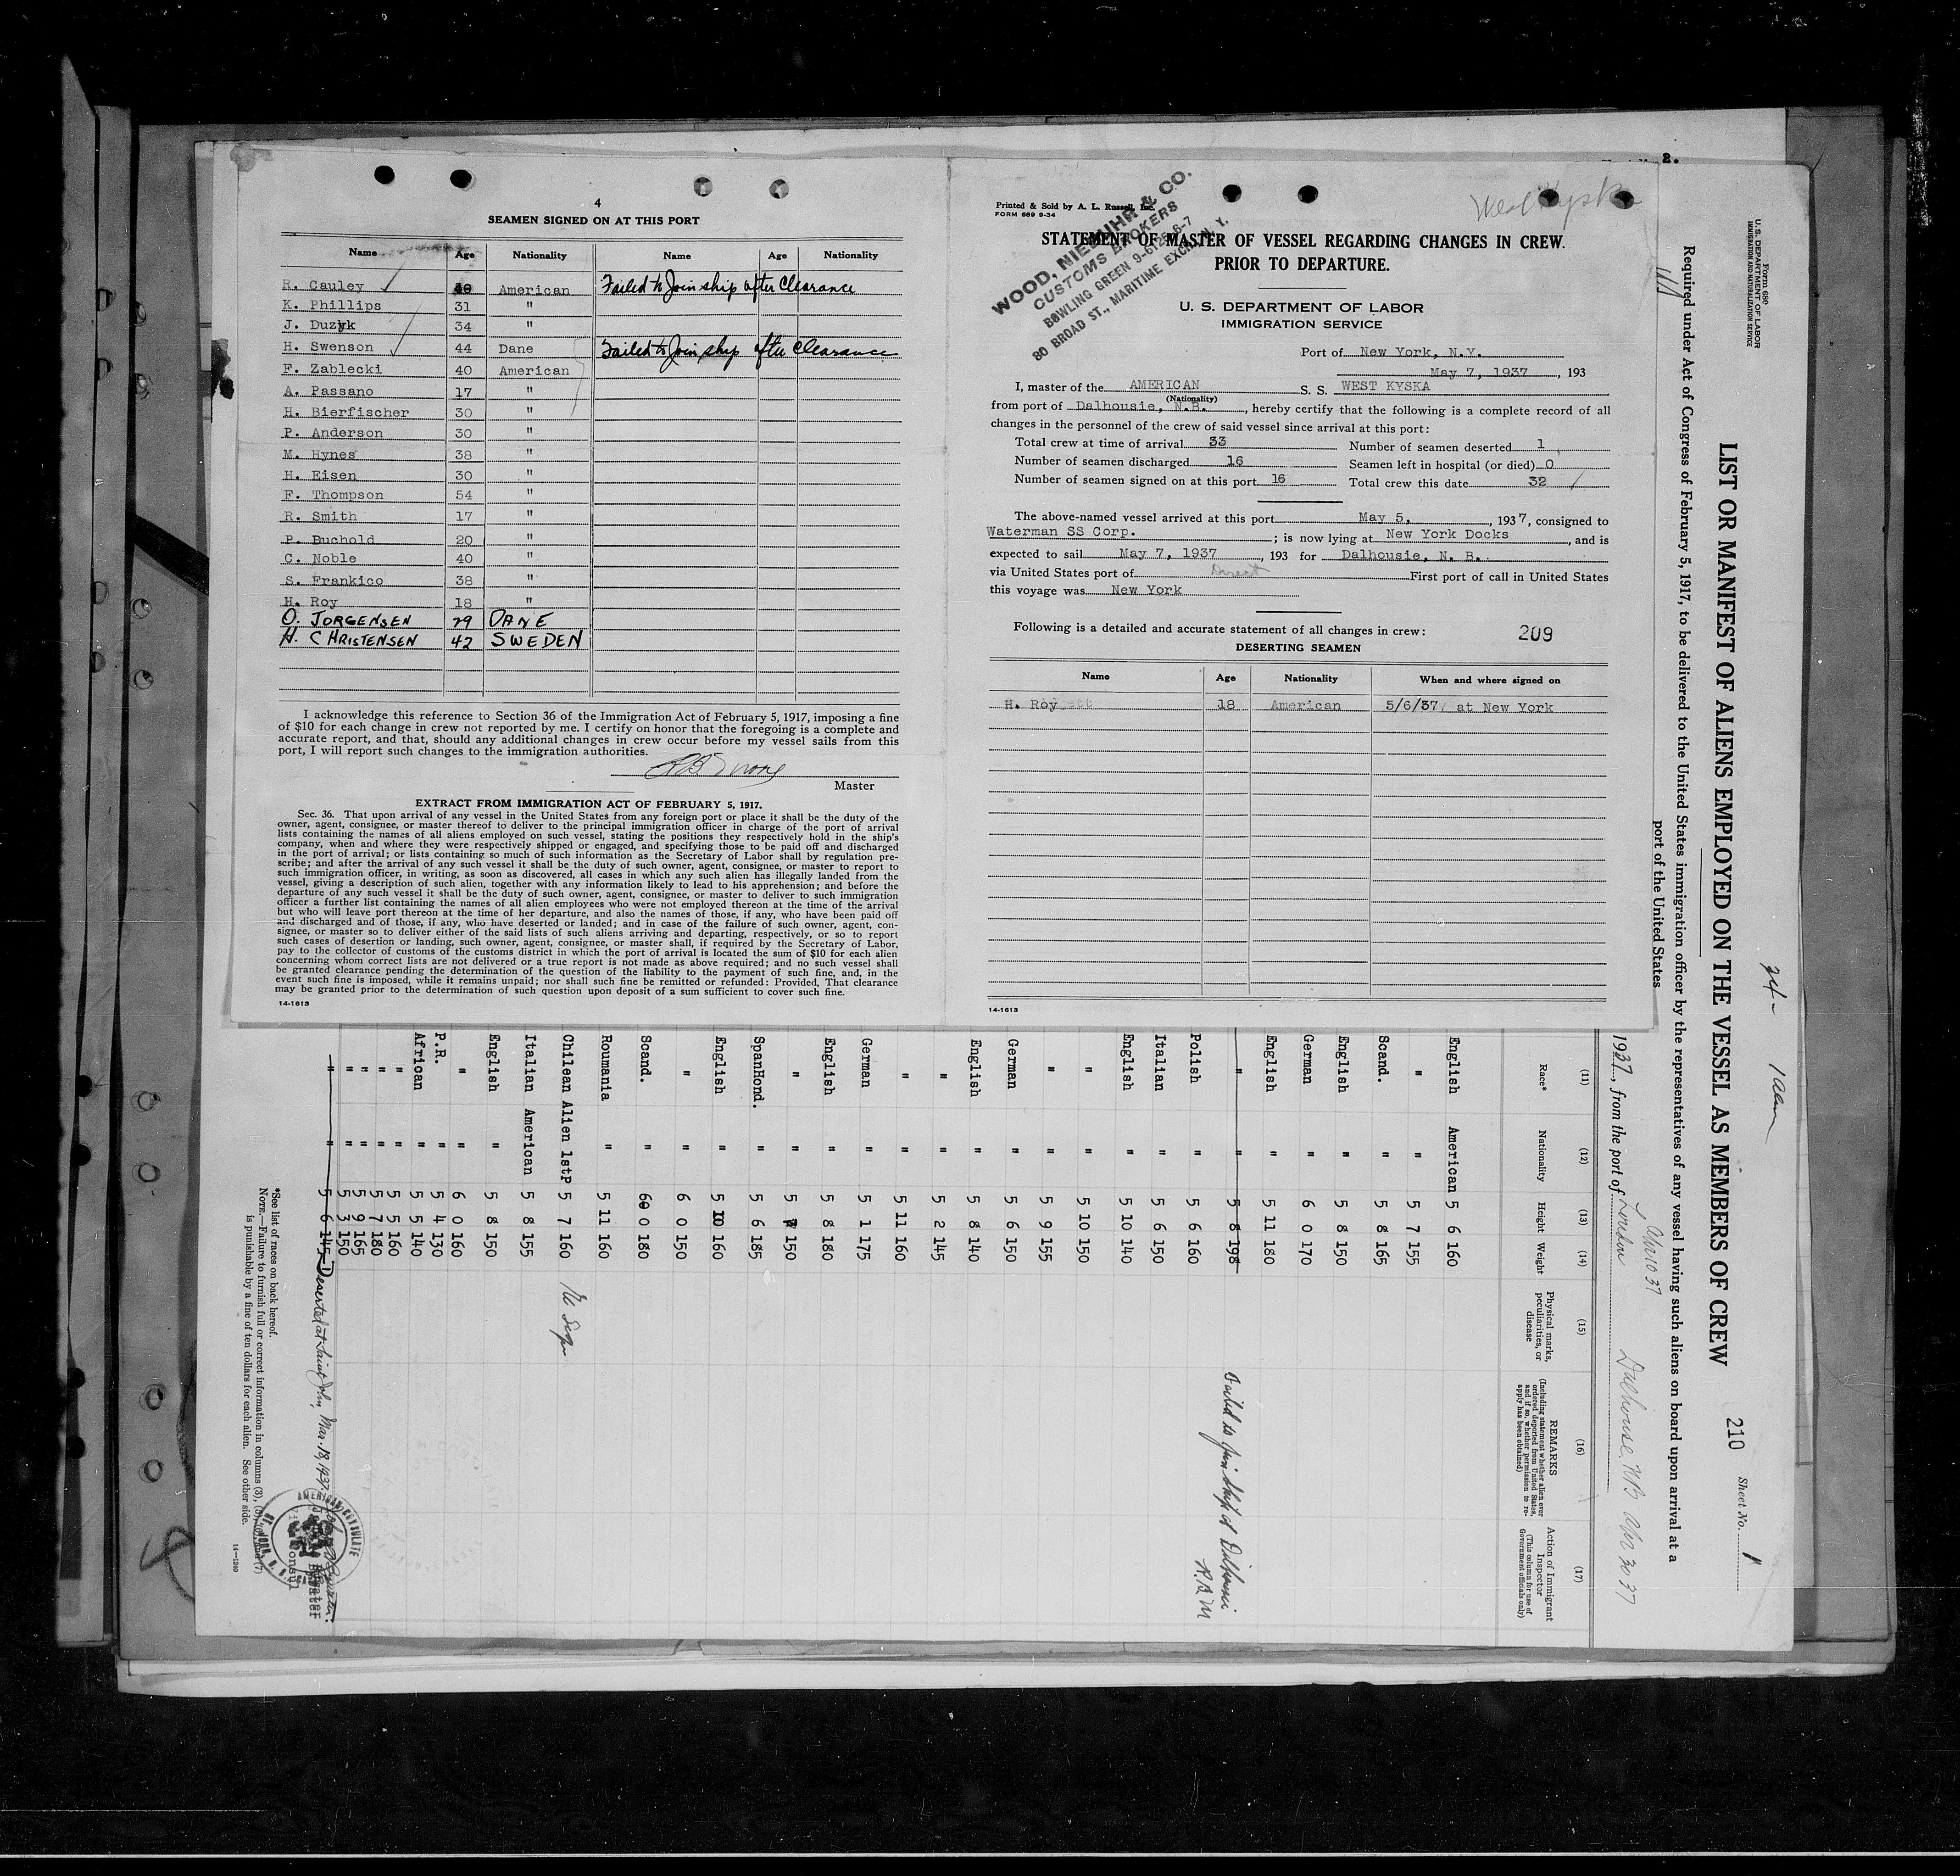 4
SEAMEN SIGNED ON AT THIS PORT
Name Age Nationality Name Age Nationality
R. Cauley American Failed to Join ship after Clearance
K. Phillips 31 "
J. Duzyk 34 "
H. Swenson 44 Dane Failed to Join ship after Clearance
F. Zablecki 40 American
A. Passano 17 "
H. Bierfischer 30 "
P. Anderson 30 "
M. Hynes 38 "
H. Eisen 30 "
F. Thompson 54 "
R. Smith 17 "
P. Buchold 20 "
C. Noble 40 "
S. Frankico 38 "
H. Roy 18 "
O. JORGENSEN 29 DANE
H. CHRISTENSEN 42 SWEDEN
I acknowledge this reference to Section 36 of the Immigration Act of February 5, 1917, imposing a fine
of $10 for each change in crew not reported by me. I certify on honor that the foregoing is a complete and
accurate report, and that, should any additional changes in crew occur before my vessel sails from this
port, I will report such changes to the immigration authorities.
Master
EXTRACT FROM IMMIGRATION ACT OF FEBRUARY 5, 1917.
Sec. 36. That upon arrival of any vessel in the United States from any foreign port or place it shall be the duty of the
owner, agent, consignee, or master thereof to deliver to the principal immigration officer in charge of the port of arrival
lists containing the names of all aliens employed on such vessel, stating the positions they respectively hold in the ship's
company, when and where they were respectively shipped or engaged, and specifying those to be paid off and discharged
in the port of arrival; or lists containing so much of such information as the Secretary of Labor shall by regulation pre-
scribe; and after the arrival of any such vessel it shall be the duty of such owner, agent, consignee, or master to report to
such immigration officer, in writing, as soon as discovered, all cases in which any such alien has illegally landed from the
vessel, giving a description of such alien, together with any information likely to lead to his apprehension; and before the
departure of any such vessel it shall be the duty of such owner, agent, consignee, or master to deliver to such immigration
officer a further list containing the names of all alien employees who were not employed thereon at the time of the arrival
but who will leave port thereon at the time of her departure, and also the names of those, if any, who have been paid off
and discharged and of those, if any, who have deserted or landed; and in case of the failure of such owner, agent, con-
signee, or master so to deliver either of the said lists of such aliens arriving and departing, respectively, or so to report
such cases of desertion or landing, such owner, agent, consignee, or master shall, if required by the Secretary of Labor,
pay to the collector of customs of the customs district in which the port of arrival is located the sum of $10 for each alien
concerning whom correct lists are not delivered or a true report is not made as above required; and no such vessel shall
be granted clearance pending the determination of the question of the liability to the payment of such fine, and, in the
event such fine is imposed, while it remains unpaid; nor shall such fine be remitted or refunded: Provided, That clearance
may be granted prior to the determination of such question upon deposit of a sum sufficient to cover such fine.
14-1613
Printed & Sold by A. L. Russell, Inc.
FORM 689 9-34
West Kyska
WOOD, NIEBUHR & CO.
CUSTOMS BROKERS
BOWLING GREEN 9-6125-6-7
80 BROAD ST., MARITIME EXCH. N. Y.
STATEMENT OF MASTER OF VESSEL REGARDING CHANGES IN CREW.
PRIOR TO DEPARTURE.
U. S. DEPARTMENT OF LABOR
IMMIGRATION SERVICE
Port of New York, N.Y.
May 7, 1937, 193
I, master of the AMERICAN S. S. WEST KYSKA
(Nationality)
from port of Dalhousie, N.B., hereby certify that the following is a complete record of all
changes in the personnel of the crew of said vessel since arrival at this port:
Total crew at time of arrival 33 Number of seamen deserted 1
Number of seamen discharged 16 Seamen left in hospital (or died) 0
Number of seamen signed on at this port 16 Total crew this date 32
The above-named vessel arrived at this port May 5, 1937, consigned to
Waterman SS Corp.; is now lying at New York Docks, and is
expected to sail May 7, 1937, 193 for Dalhousie, N. B.
via United States port of Direct First port of call in United States
this voyage was New York
Following is a detailed and accurate statement of all changes in crew: 209
DESERTING SEAMEN
Name Age Nationality When and where signed on
H. Roy 18 American 5/6/37 at New York
14-1613
2.
Form 680
U. S. DEPARTMENT OF LABOR
IMMIGRATION AND NATURALIZATION SERVICE
LIST OR MANIFEST OF ALIENS EMPLOYED ON THE VESSEL AS MEMBERS OF CREW
210
Sheet No. 1
Required under Act of Congress of February 5, 1917, to be delivered to the United States immigration officer by the representatives of any vessel having such aliens on board upon arrival at a
port of the United States
1937, from the port of London Dalhousie NB Apr 30 37
(11) (12) (13) (14) (15) (16) (17)
Race* Nationality Height Weight Physical marks, peculiarities, or disease
REMARKS
(Including statement whether alien ever ordered deported from United States, and if so, whether permission to re-apply has been obtained)
Action of Immigrant Inspector
(This column for use of Government officials only)
English American 5 6 160
" " 5 7 155
Scand. " 5 8 165
English " 5 8 150
German " 6 0 170
English " 5 11 180
" " 5 8 198 Failed to join ship at Dalhousie
Polish " 5 6 160
Italian " 5 6 150
English " 5 10 140
" " 5 10 150
" " 5 9 155
German " 5 6 150
English " 5 8 140
" " 5 2 145
" " 5 11 160
German " 5 1 175
English " 5 8 180
" " 5 150
SpanHond. " 5 6 185
English " 5 10 160
" " 6 0 150
Scand. " 6 0 180
Roumania " 5 11 160
Chilean Alien 1stP 5 7 160
Italian American 5 8 155
English " 5 8 150
" " 6 0 160
P.R. " 5 4 130
African " 5 5 140
" " 5 5 160
" " 5 7 180
" " 5 9 165
" " 5 3 150
" " 5 6 145 Deserted at Saint John, Mar. 18, 1937
AMERICAN CONSULATE
*See list of races on back hereof.
NOTE.—Failure to furnish full or correct information in columns (3), (5), (6), and (7)
is punishable by a fine of ten dollars for each alien. See other side.